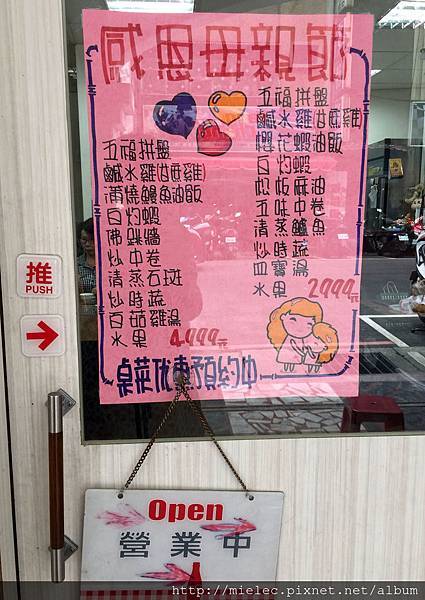 感恩母親節
五福拼盤
鹹水雞甘蔗雞
蒲燒鰻魚油飯
白灼蝦
佛跳牆
炒中卷
清蒸石斑
炒時蔬
白菇雞湯
水果 4999元
五福拼盤
鹹水雞甘蔗雞
櫻花蝦油飯
白灼蝦
麻油
五味中卷
清蒸鱸魚
炒時蔬
四寶湯
水果 2999元
桌菜优惠預約中
推
PUSH
Open
營業中
http://mielec.pixnet.net/album